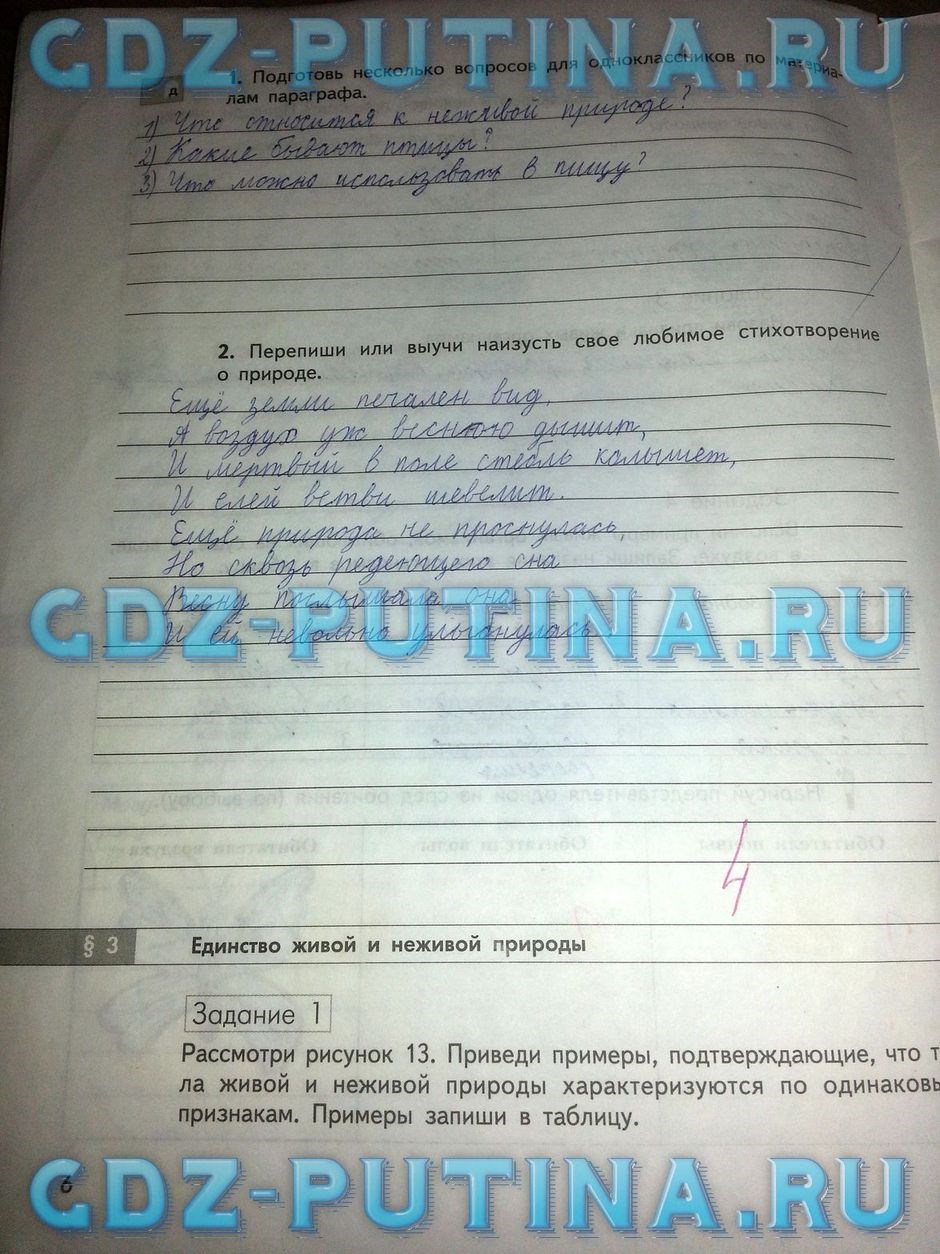 GDZ-PUTINA.RU
д
1. Подготовь несколько вопросов для одноклассников по материа-
лам параграфа.
1) Что относится к неживой природе?
2) Какие бывают птицы?
3) Что можно использовать в пищу?
2. Перепиши или выучи наизусть свое любимое стихотворение
о природе.
Ещё земли печален вид,
А воздух уж весною дышит,
И мертвый в поле стебль колышет,
И елей ветви шевелит.
Ещё природа не проснулась
Но сквозь редеющего сна
GDZ-PUTINA.RU
Весну послышала она
И ей невольно улыбнулась.
4
§ 3
Единство живой и неживой природы
Задание 1
Рассмотри рисунок 13. Приведи примеры, подтверждающие, что т
ла живой и неживой природы характеризуются по одинаковы
признакам. Примеры запиши в таблицу.
6
GDZ-PUTINA.RU